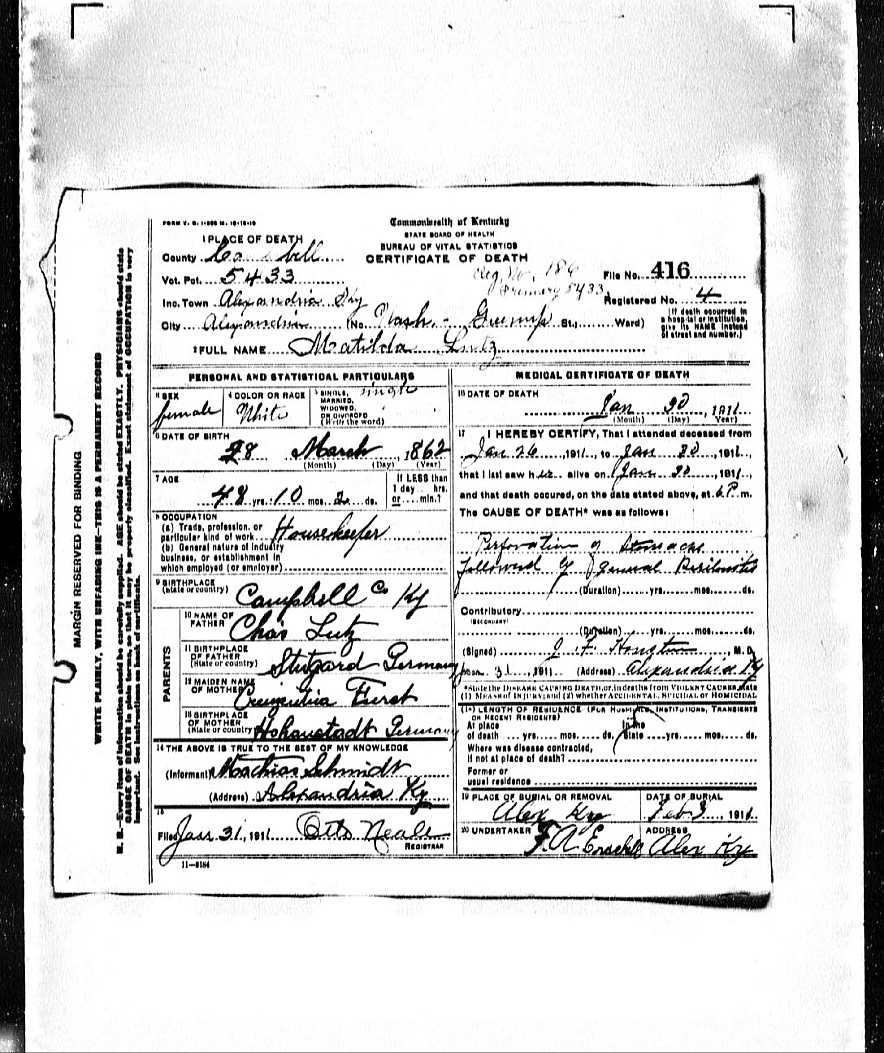 MARGIN RESERVED FOR BINDING
WRITE PLAINLY, WITH UNFADING INK—THIS IS A PERMANENT RECORD
N. B.—Every item of information should be carefully supplied. AGE should be stated EXACTLY. PHYSICIANS should state
CAUSE OF DEATH in plain terms, so that it may be properly classified. Exact statement of OCCUPATION is very
important. See instructions on back of certificate.
Commonwealth of Kentucky
STATE BOARD OF HEALTH
BUREAU OF VITAL STATISTICS
CERTIFICATE OF DEATH
1 PLACE OF DEATH
County
Vot. Pct. 5433
Reg. No. 186
File No. 416
Primary 5433
Inc. Town Alexandria Ky
Registered No. 4
City Alexandria (No. St.; Ward)
[If death occurred in
a hospital or institution,
give its NAME instead
of street and number.]
2 FULL NAME Matilda Lutz
PERSONAL AND STATISTICAL PARTICULARS
3 SEX female
4 COLOR OR RACE White
5 SINGLE, single
MARRIED,
WIDOWED,
OR DIVORCED
(Write the word)
6 DATE OF BIRTH
28 March 1862
(Month) (Day) (Year)
7 AGE
48 yrs. 10 mos. 2 ds.
If LESS than
1 day hrs.
or min.?
8 OCCUPATION
(a) Trade, profession, or
particular kind of work Housekeeper
(b) General nature of industry
business, or establishment in
which employed (or employer)
9 BIRTHPLACE
(State or country) Campbell Co Ky
PARENTS
10 NAME OF
FATHER Chas Lutz
11 BIRTHPLACE
OF FATHER
(State or country) Stutgard Germany
12 MAIDEN NAME
OF MOTHER Furst
13 BIRTHPLACE
OF MOTHER
(State or country) Hohanstadt Germany
14 THE ABOVE IS TRUE TO THE BEST OF MY KNOWLEDGE
(Informant) Mathias Schmidt
(Address) Alexandria Ky
15
Filed Jan 31, 1911 Otto Neale
REGISTRAR
11—5184
MEDICAL CERTIFICATE OF DEATH
16 DATE OF DEATH
Jan 30, 1911
(Month) (Day) (Year)
17 I HEREBY CERTIFY, That I attended deceased from
Jan 26, 1911, to Jan 30, 1911,
that I last saw her alive on Jan 30, 1911,
and that death occured, on the date stated above, at 6 P m.
The CAUSE OF DEATH* was as follows:
Perforation of Stomach
followed by general Peritonitis
(Duration) yrs. mos. ds.
Contributory
(SECONDARY)
(Duration) yrs. mos. ds.
(Signed) J. F. , M. D.
Jan. 31, 1911. (Address) Alexandria Ky
*State the DISEASE CAUSING DEATH, or, in deaths from VIOLENT CAUSES, state
(1) MEANS OF INJURY; and (2) whether ACCIDENTAL, SUICIDAL or HOMICIDAL
18 LENGTH OF RESIDENCE (FOR HOSPITALS, INSTITUTIONS, TRANSIENTS
OR RECENT RESIDENTS)
At place In the
of death yrs. mos. ds. State yrs. mos. ds.
Where was disease contracted,
if not at place of death?
Former or
usual residence
19 PLACE OF BURIAL OR REMOVAL DATE OF BURIAL
Alex Ky Feb 3, 1911
20 UNDERTAKER ADDRESS
F. A. Alex Ky